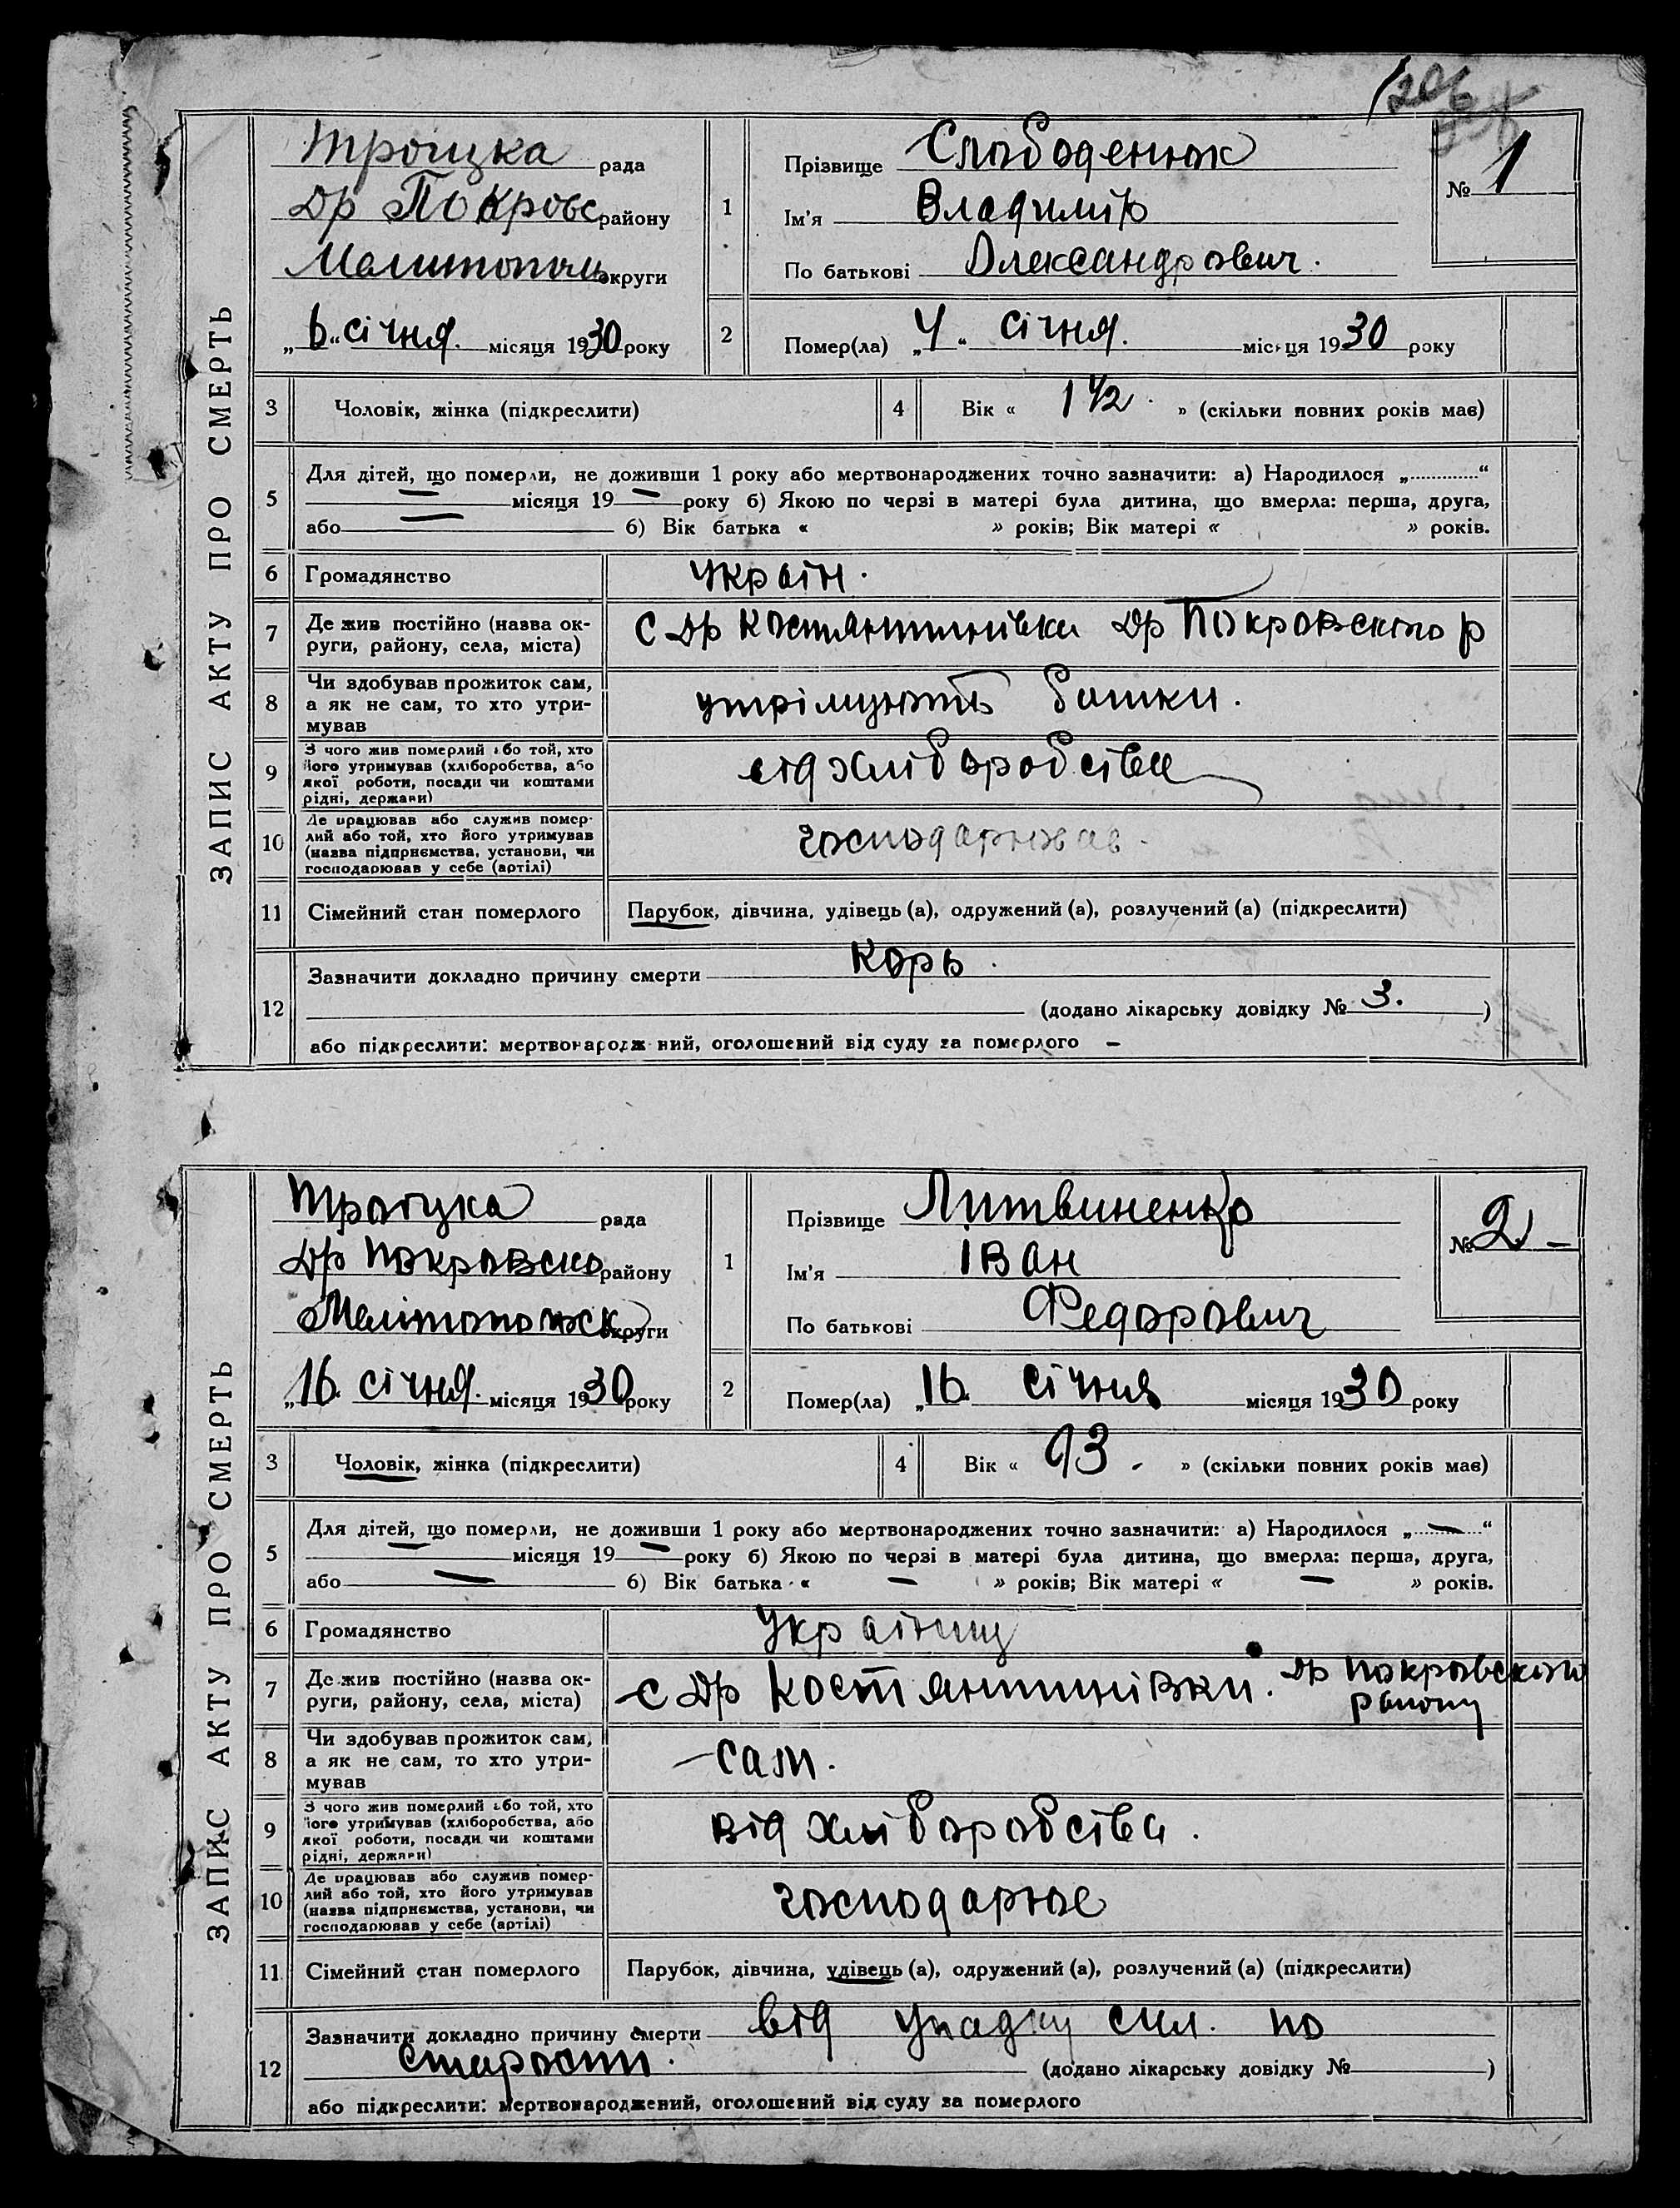 1
Троицка рада
Др Покровс району
Мелитополь округи
„6“ січня. місяця 1930 року
ЗАПИС АКТУ ПРО СМЕРТЬ
1 Прізвище Слободенюк
Ім'я Владимір
По батькові Олександрович.
№ 1
2 Помер(ла) „4“ січня. місяця 1930 року
3 Чоловік, жінка (підкреслити) 4 Вік « 1 1/2 » (скільки повних років має)
5 Для дітей, що померли, не доживши 1 року або мертвонароджених точно зазначити: а) Народилося „............“
— місяця 19 — року б) Якою по черзі в матері була дитина, що вмерла: перша, друга,
або — б) Вік батька « » років; Вік матері « » років.
6 Громадянство Україн.
7 Де жив постійно (назва ок-
руги, району, села, міста) С Др Костянтинівки Др Покровского р
8 Чи здобував прожиток сам,
а як не сам, то хто утри-
мував утрімують батки.
9 З чого жив померлий або той, хто
його утримував (хліборобства, або
якої роботи, посади чи коштами
рідні, держави) від хліборобсіва
10 Де працював або служив помер-
лий або той, хто його утримував
(назва підприємства, установи, чи
господарював у себе (артілі) господарював.
11 Сімейний стан померлого Парубок, дівчина, удівець (а), одружений (а), розлучений (а) (підкреслити)
12 Зазначити докладно причину смерти Корь.
(додано лікарську довідку № 3. )
або підкреслити: мертвонароджений, оголошений від суду за померлого —
Троіцка рада
Др Покровско району
Мелітопольск округи
„16. січня. місяця 1930 року
ЗАПИС АКТУ ПРО СМЕРТЬ
1 Прізвище Литвиненко
Ім'я Іван
По батькові Федорович
№ 2 —
2 Помер(ла) „16. січня місяця 1930 року
3 Чоловік, жінка (підкреслити) 4 Вік « 93. » (скільки повних років має)
5 Для дітей, що померли, не доживши 1 року або мертвонароджених точно зазначити: а) Народилося „ — “
— місяця 19 — року б) Якою по черзі в матері була дитина, що вмерла: перша, друга,
або — б) Вік батька « — » років; Вік матері « — » років.
6 Громадянство
7 Де жив постійно (назва ок-
руги, району, села, міста) с Др Костянтинівки. Др Покровского
району
8 Чи здобував прожиток сам,
а як не сам, то хто утри-
мував — сам.
9 З чого жив померлий або той, хто
його утримував (хліборобства, або
якої роботи, посади чи коштами
рідні, держави) від хліборобсіва.
10 Де працював або служив помер-
лий або той, хто його утримував
(назва підприємства, установи, чи
господарював у себе (артілі) господарює
11 Сімейний стан померлого Парубок, дівчина, удівець (а), одружений (а), розлучений (а) (підкреслити)
12 Зазначити докладно причину смерти від упадку сил. по
старости.
(додано лікарську довідку № )
або підкреслити: мертвонароджений, оголошений від суду за померлого